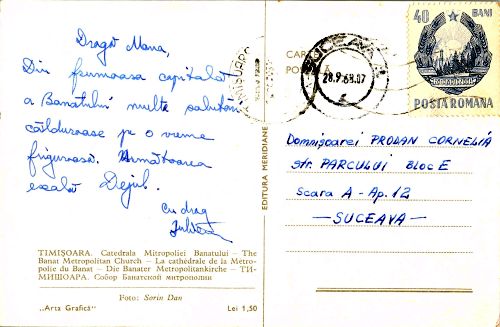 Dragă Mana,
Din frumoasa capitală
a Banatului multe salutări
călduroase pe o vreme
friguroasă. Următoarea
escală Dejul.
cu drag
TIMIȘOARA. Catedrala Mitropoliei Banatului – The
Banat Metropolitan Church – La cathédrale de la Metro-
polie du Banat – Die Banater Metropolitankirche – ТИ-
МИШОАРА. Собор Банатской митрополии
Foto: Sorin Dan
„Arta Grafică”
Lei 1,50
EDITURA MERIDIANE
SUCEAVA
28.9.68.07
40 BANI
POSTA ROMANA
Domnișoarei PRODAN CORNELIA
str. PARCULUI BLOC E
Scara A - Ap. 12
— SUCEAVA —